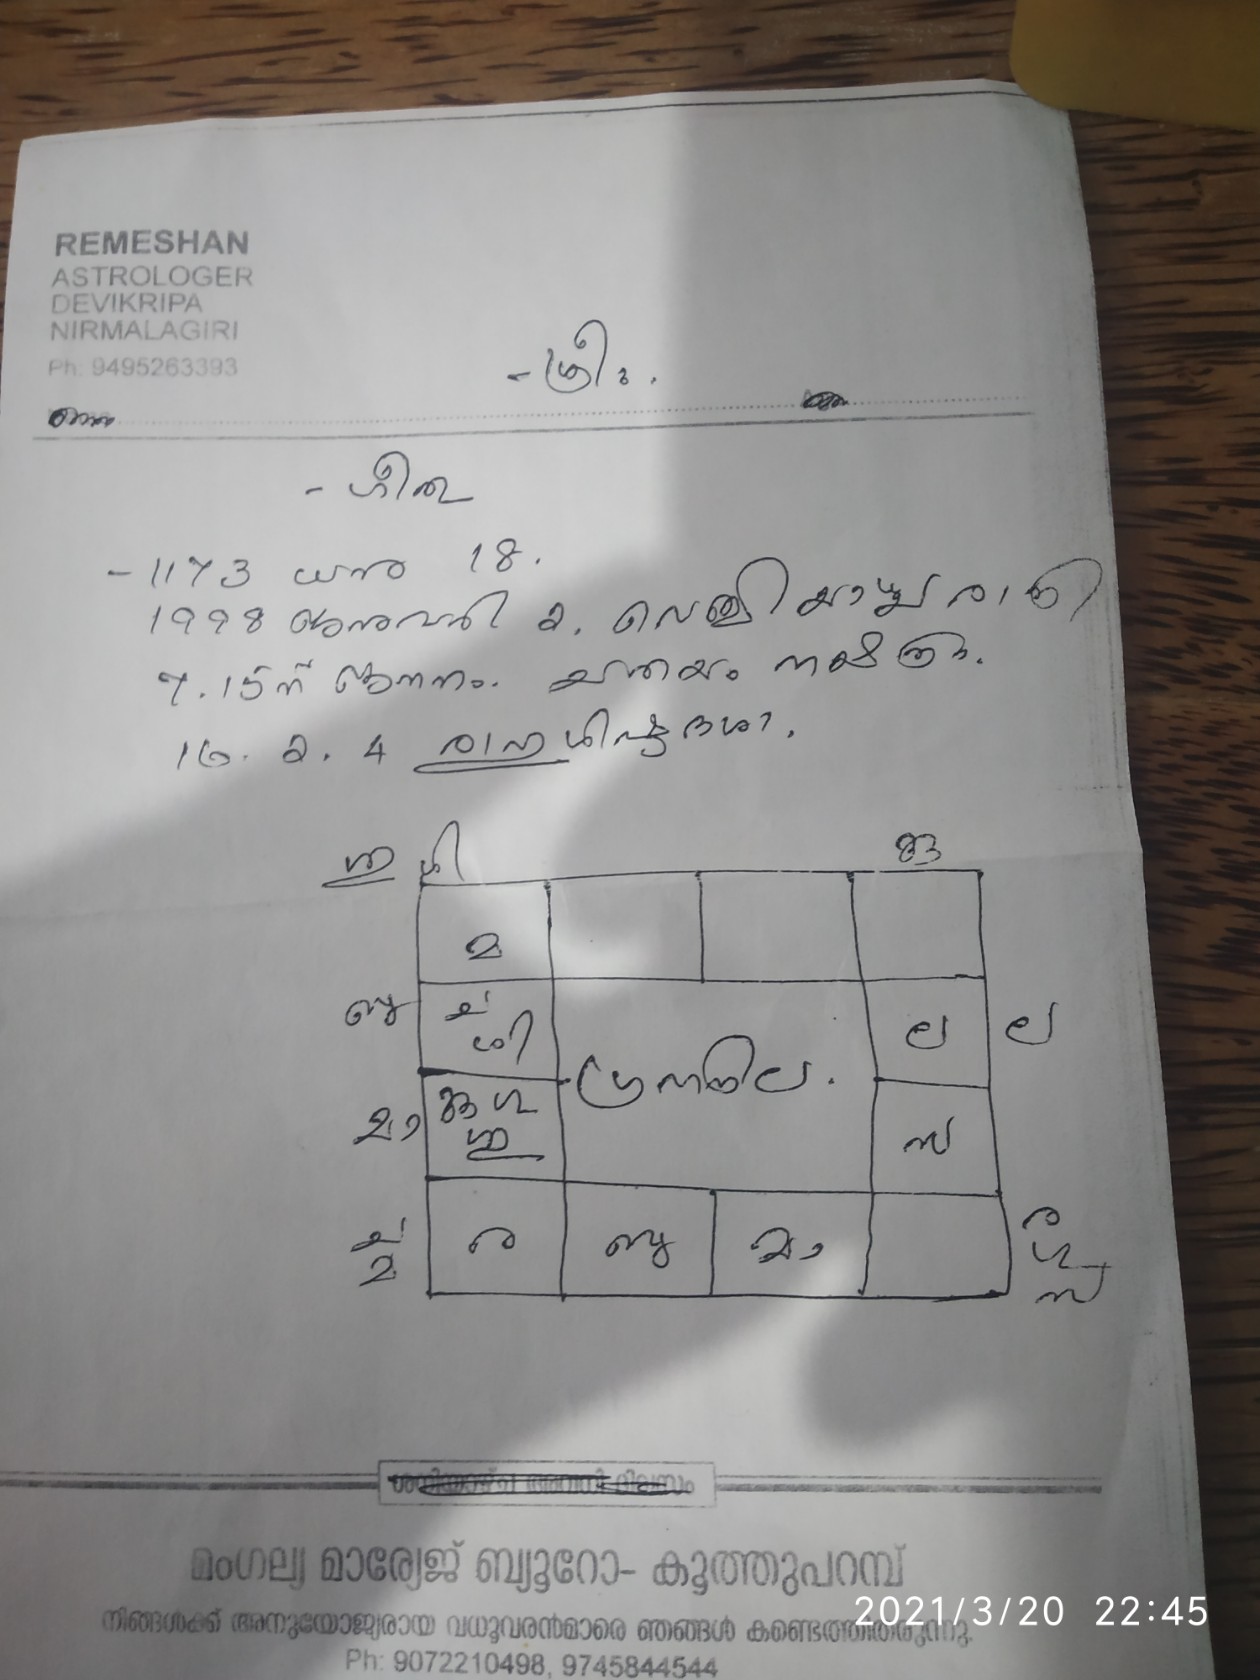 REMESHAN
ASTROLOGER
DEVIKRIPA
NIRMALAGIRI
Ph: 9495263393
- ശ്രീഃ.
- ഗീതു
- 1173 ധനു 18.
1998 ജനുവരി 2. വെള്ളിയാഴ്ച രാത്രി
7.15ന് ജനനം. ചതയം നക്ഷത്രം.
16. 2. 4 രാഹു ശിഷ്ടദശാ.
ഗു ശി
മ
ബു ച
ശി ഗ്രഹനില. ല ല
മാ
സ
ച
മ ര ബു മാ ര
സ
മംഗല്യ മാര്യേജ് ബ്യൂറോ- കൂത്തുപറമ്പ്
നിങ്ങൾക്ക് അനുയോജ്യരായ വധൂവരൻമാരെ ഞങ്ങൾ കണ്ടെത്തിതരുന്നു.
2021/3/20 22:45
Ph: 9072210498, 9745844544